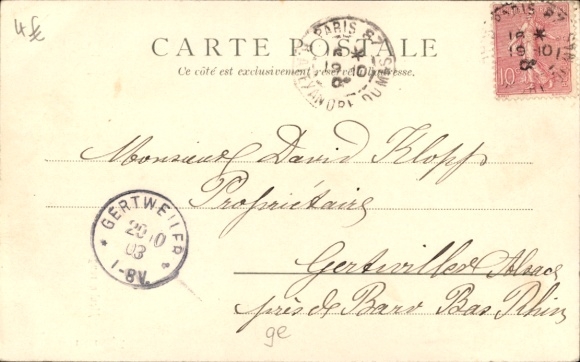 4 fe
CARTE POSTALE
Ce côté est exclusivement réservé à l'adresse.
PARIS 87
10
PARIS 87
Monsieur David Klopp
Propriétaire
Gertwiller Alsace
près de Barr Bas Rhin
GERTWEILER
20 10
03
1-8V.
ge